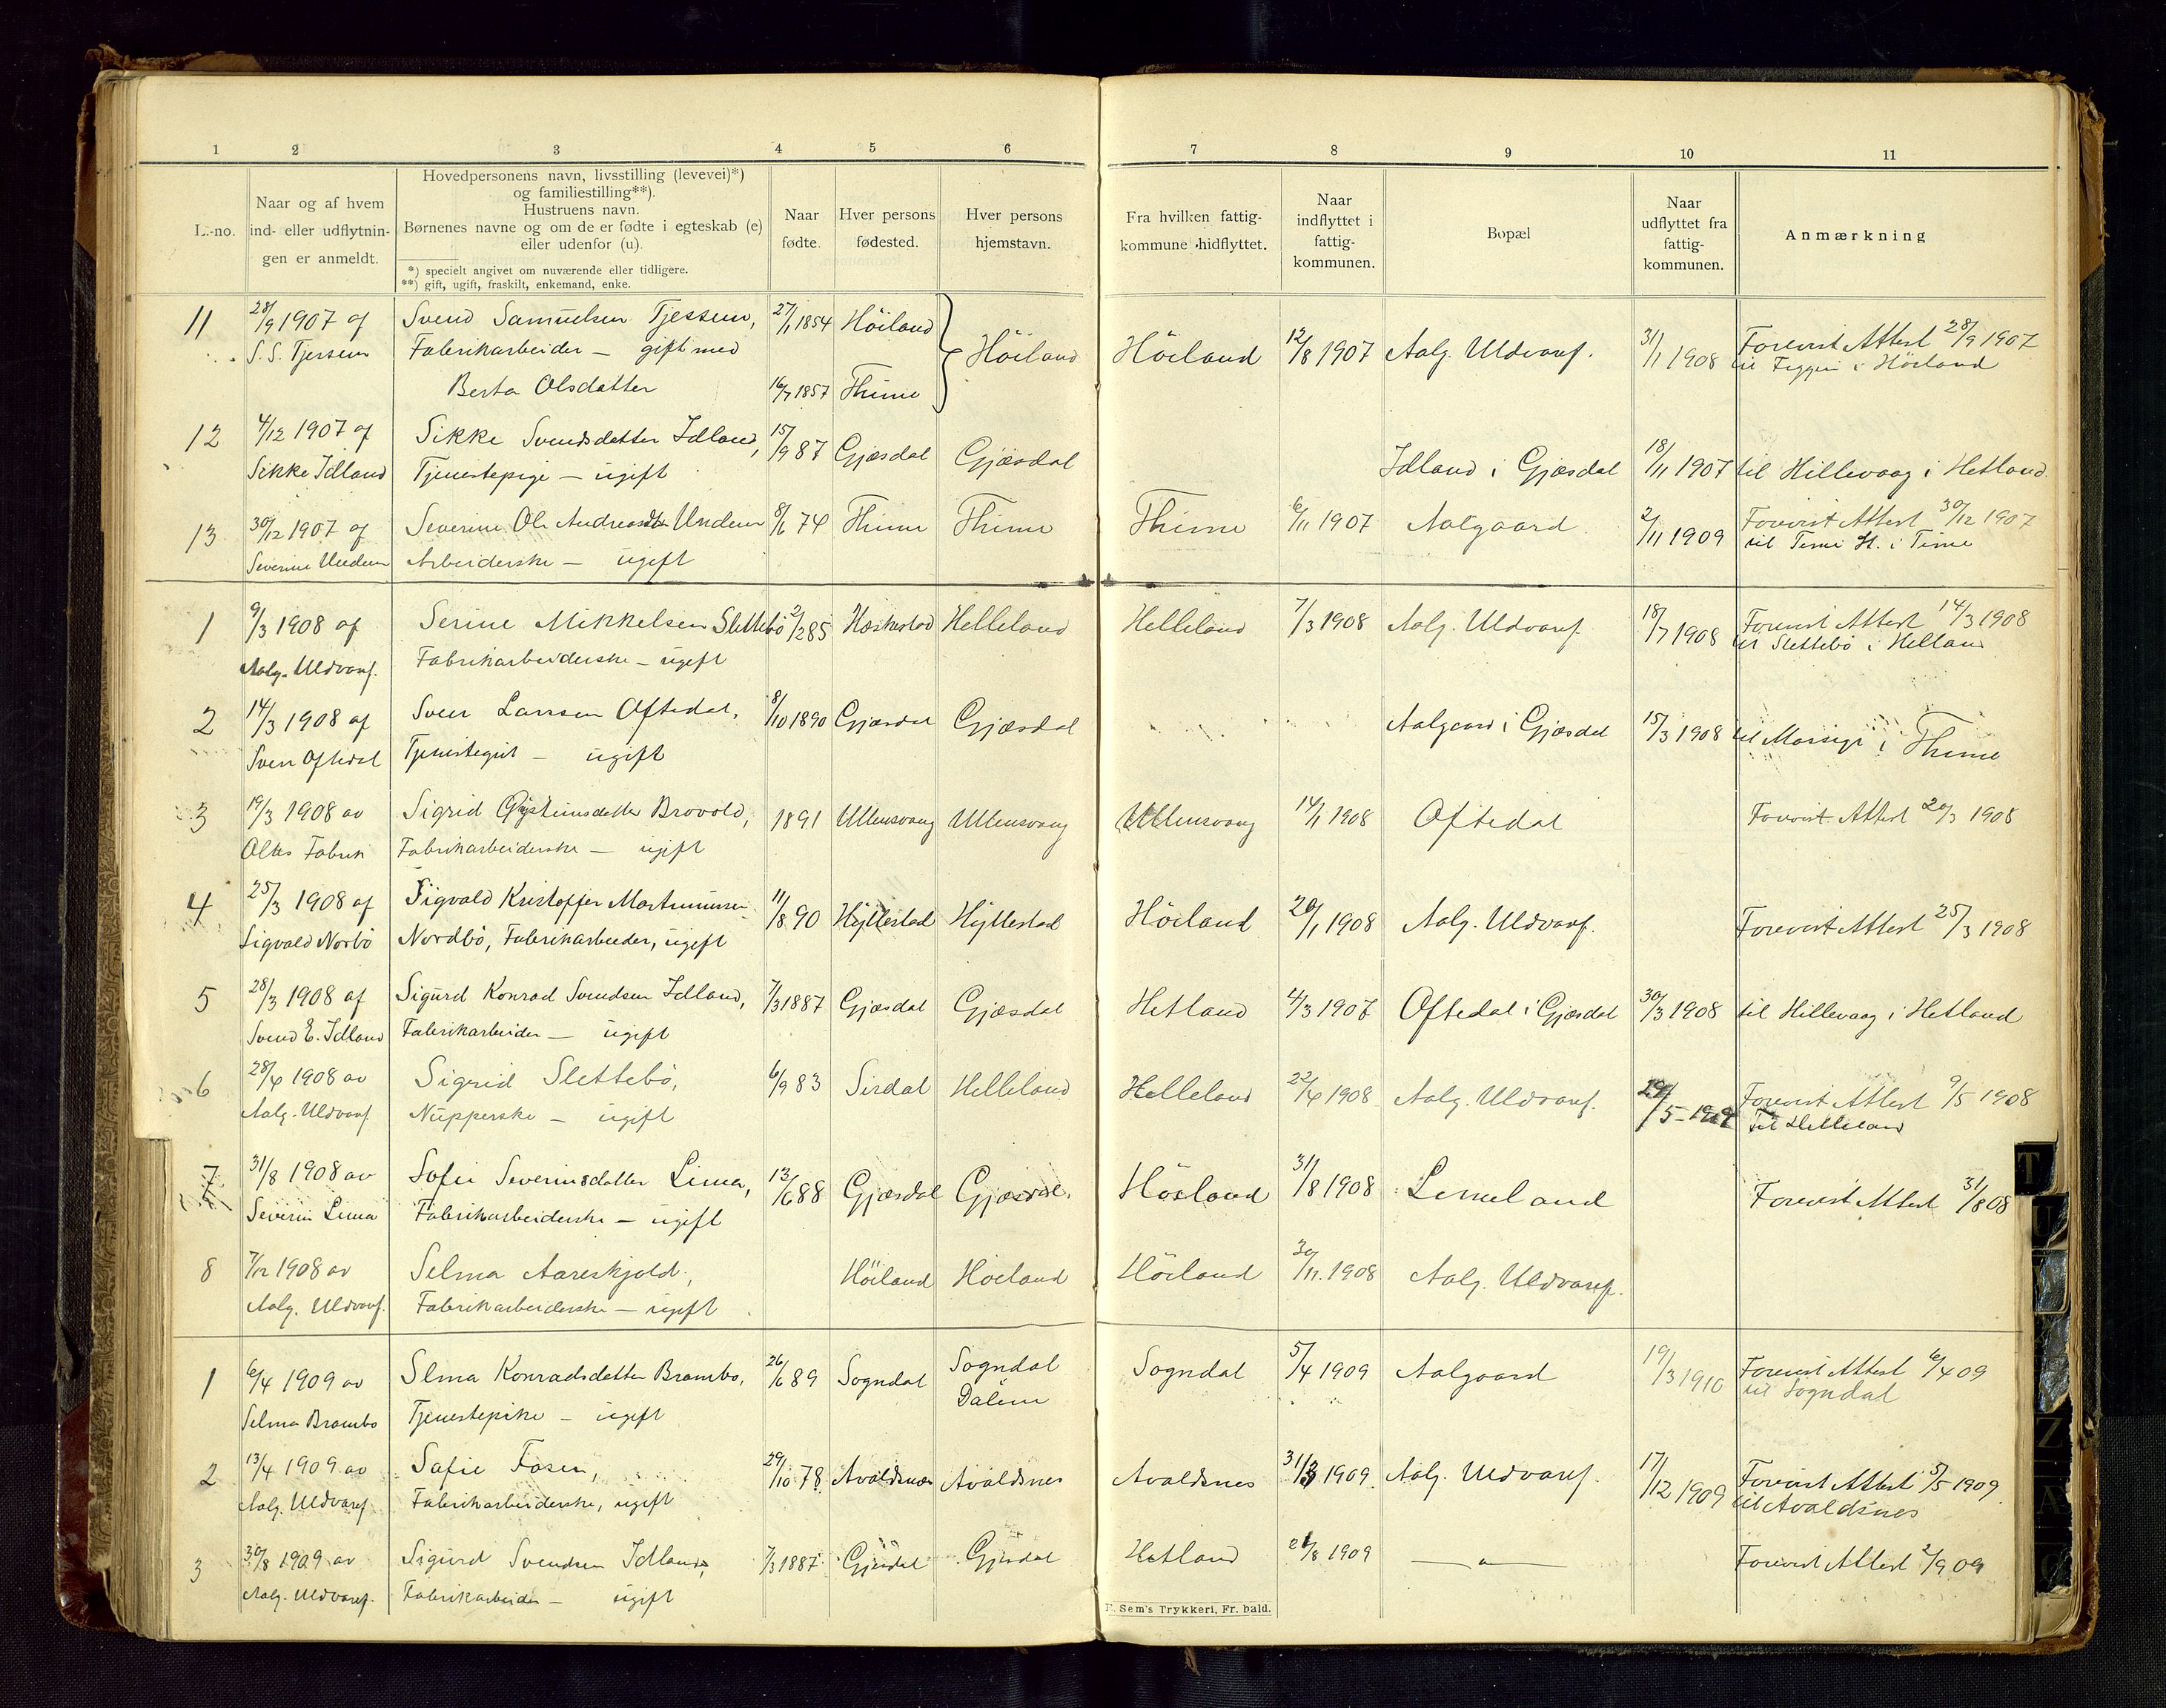 1 2 3 4 5 6 7 8 9 10 11
L.-no.
Naar og af hvem
ind- eller udflytnin-
gen er anmeldt.
Hovedpersonens navn, livsstilling (levevei)*)
og familiestilling**).
Hustruens navn.
Børnenes navne og om de er fødte i egteskab (e)
eller udenfor (u).
*) specielt angivet om nuværende eller tidligere.
**) gift, ugift, fraskilt, enkemand, enke.
Naar
fødte.
Hver persons
fødested.
Hver persons
hjemstavn.
Fra hvilken fattig-
kommune hidflyttet.
Naar
indflyttet i
fattig-
kommunen.
Bopæl
Naar
udflyttet fra
fattig-
kommunen.
Anmærkning
11 28/9 1907 af Svend Samuelsen Tjessem, 27/1 1854 Höiland Höiland Höiland 12/8 1907 Aalg. Uldvaref. 31/1 1908 Forevist Attest 28/9 1907
S. S. Tjessem Fabrikarbeider – gift med til Figgen i Höiland
Berta Olsdatter 16/7 1857 Thime
12 4/12 1907 af Sikke Svendsdatter Idland, 15/9 87 Gjæsdal Gjæsdal Idland i Gjæsdal 18/11 1907 til Hillevaag i Hetland
Sikke Idland Tjenestepige – ugift
13 30/12 1907 af Severine Ol. Andreasdtr Undem 8/6 74 Thime Thime Thime 6/11 1907 Aalgaard 2/11 1909 Forevist Attest 30/12 1907
Severine Undem Arbeiderske – ugift til Time H. i Time
1 9/3 1908 af Serine Mikkelsen Slettebö 2/2 85 Heskestad Helleland Helleland 7/3 1908 Aalg. Uldvaref 18/7 1908 Forevist Attest 14/3 1908
Aalg. Uldvaref. Fabrikarbeiderske – ugift til Slettebö i Helland
2 14/3 1908 af Sven Larsen Oftedal, 8/10 1890 Gjæsdal Gjæsdal Aalgaard i Gjæsdal 15/3 1908 til Mossige i Thime
Sven Oftedal Tjenestegut – ugift
3 19/3 1908 av Sigrid Øysteinsdatter Brovold, 1891 Ullensvang Ullensvang Ullensvang 14/1 1908 Oftedal Forevist Attest 20/3 1908
Fabrik Fabrikarbeiderske – ugift
4 25/3 1908 af Sigvald Kristoffer Mortinussen 11/8 90 Hyllestad Hyllestad Höiland 20/1 1908 Aalg. Uldvaref. Forevist Attest 25/3 1908
Sigvald Norbö Nordbö, Fabrikarbeider, ugift
5 28/3 1908 af Sigurd Konrad Svendsen Idland, 7/3 1887 Gjæsdal Gjæsdal Hetland 4/3 1907 Oftedal i Gjæsdal 30/3 1908 til Hillevaag i Hetland
Svend E. Idland Fabrikarbeider – ugift
6 28/4 1908 av Sigrid Slettebö, 6/9 83 Sirdal Helleland Helleland 22/4 1908 Aalg. Uldvaref. 29/5 – 1909 Forevist Attest 9/5 1908
Aalg. Uldvaref Nupperske – ugift Til Helleland
7 31/8 1908 av Sofie Severinsdatter Lima, 13/6 88 Gjæsdal Gjæsdal. Höiland 31/8 1908 Limeland Forevist Attest 31/8 08
Severin Lima Fabrikarbeiderske – ugift
8 7/12 1908 av Selma Aareskjold, Höiland Höiland Höiland 30/11 1908 Aalg. Uldvaref.
Aalg. Uldvaref. Fabrikarbeiderske – ugift
1 6/4 1909 av Selma Konradsdatter Brambo, 26/6 89 Sogndal Sogndal Sogndal 5/4 1909 Aalgaard 19/3 1910 Forevist Attest 6/4 09
Selma Brambo Tjenestepike – ugift Dalene til Sogndal
2 13/4 1909 av Sofie Fosen, 29/10 78 Avaldsnes Avaldsnes Avaldsnes 31/3 1909 Aalg. Uldvaref. 17/12 1909 Forevist Attest 5/5 1909
Aalg. Uldvaref Fabrikarbeiderske, ugift til Avaldsnes
3 30/8 1909 av Sigurd Svendsen Idland, 7/3 1887 Gjesdal Gjesdal Hetland 21/8 1909 — " — Forevist Attest 2/9 09
Aalg. Uldvaref. Fabrikarbeider – ugift
F. Sem's Trykkeri, Fr. hald.
T
U
Z